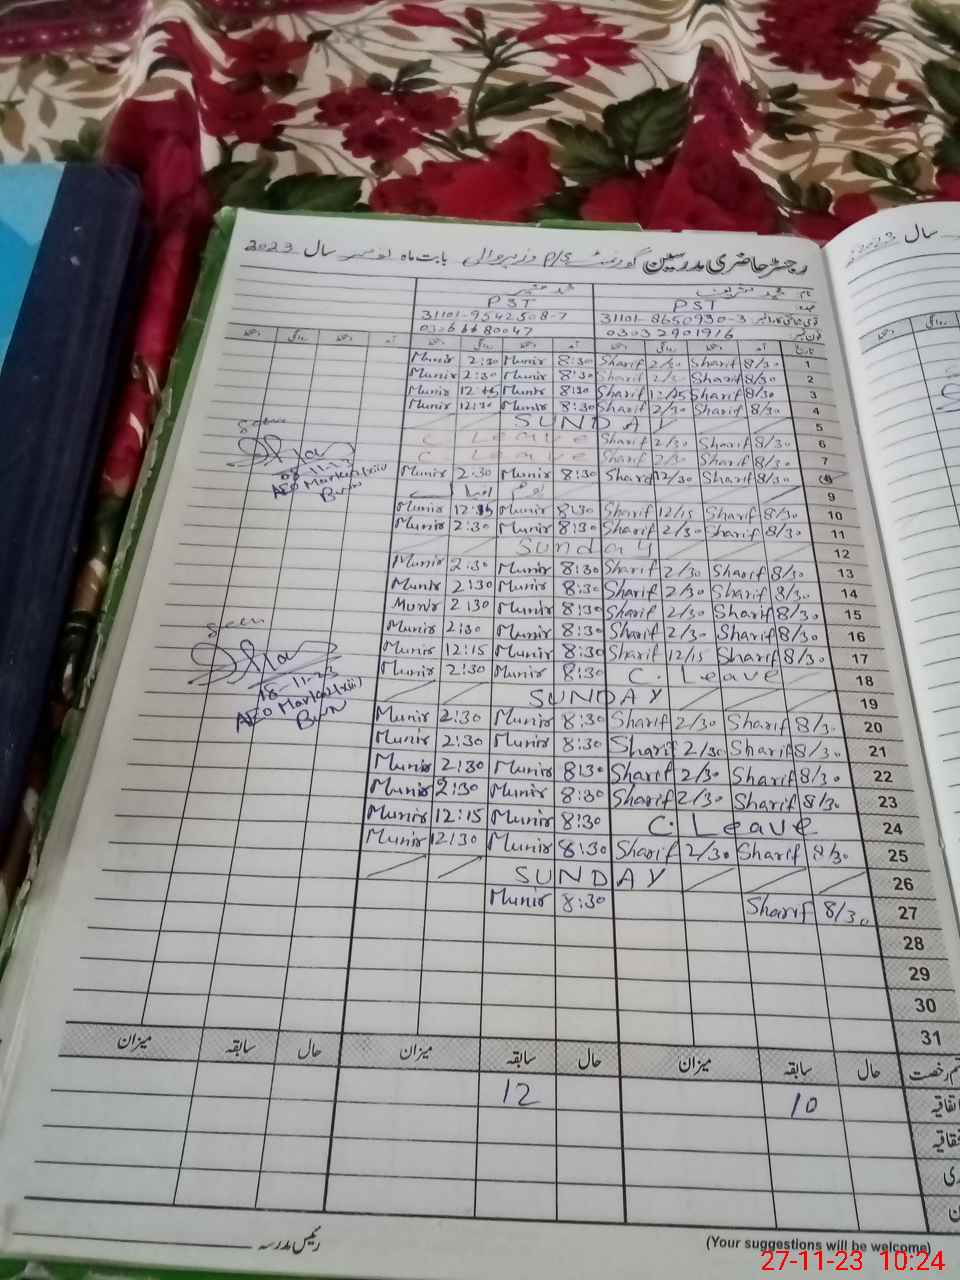 رجسٹر حاضری مدرسین گورنمنٹ P/S وزیروالی بابت ماہ نومبر سال 2023
سال 2023
نام محمد شریف محمد منیر
عہدہ PST PST
31101-8650930-3 31101-9542508-7
فون نمبر 03032901916 03066680047
تاریخ آمد دستخط روانگی دستخط آمد دستخط روانگی دستخط آمد دستخط روانگی دستخط
Munir 2:30 Munir 8:30 Sharif 2/30 Sharif 8/30 1
Munir 2:30 Munir 8:30 Sharif 2/30 Sharif 8/30 2
Munir 12 Munir 8:30 Sharif 12/15 Sharif 8/30 3
Munir 12:30 Munir 8:30 Sharif 2/30 Sharif 8/30 4
SUNDAY 5
C Leave Sharif 2/30 Sharif 8/30 6
C Leave Sharif 2/30 Sharif 8/30 7
Munir 2:30 Munir 8:30 Sharif 12/30 Sharif 8/30 8
یوم اقبال 9
Munir 12: Munir 8:30 Sharif 12/15 Sharif 8/30 10
Munir 2:30 Munir 8:30 Sharif 2/30 Sharif 8/30 11
Sunday 12
Munir 2:30 Munir 8:30 Sharif 2/30 Sharif 8/30 13
Munir 2:30 Munir 8:30 Sharif 2/30 Sharif 8/30 14
Munir 2:30 Munir 8:30 Sharif 2/30 Sharif 8/30 15
Munir 2:30 Munir 8:30 Sharif 2/30 Sharif 8/30 16
Munir 12:15 Munir 8:30 Sharif 12/15 Sharif 8/30 17
Munir 2:30 Munir 8:30 C. Leave 18
SUNDAY 19
Munir 2:30 Munir 8:30 Sharif 2/30 Sharif 8/30 20
Munir 2:30 Munir 8:30 Sharif 2/30 Sharif 8/30 21
Munir 2:30 Munir 8:30 Sharif 2/30 Sharif 8/30 22
Munir 2:30 Munir 8:30 Sharif 2/30 Sharif 8/30 23
Munir 12:15 Munir 8:30 C. Leave 24
Munir 12:30 Munir 8:30 Sharif 2/30 Sharif 8/30 25
SUNDAY 26
Munir 8:30 Sharif 8/30 27
28
29
30
31
Seen
08-11-23
AEO Markaz(xiii)
BWN
Seen
18-11-23
AEO Markaz(xiii)
BWN
قسم رخصت حال سابقہ میزان حال سابقہ میزان حال سابقہ میزان
اتفاقیہ 10 12
رئیس مدرسہ
(Your suggestions will be welcome)
27-11-23 10:24